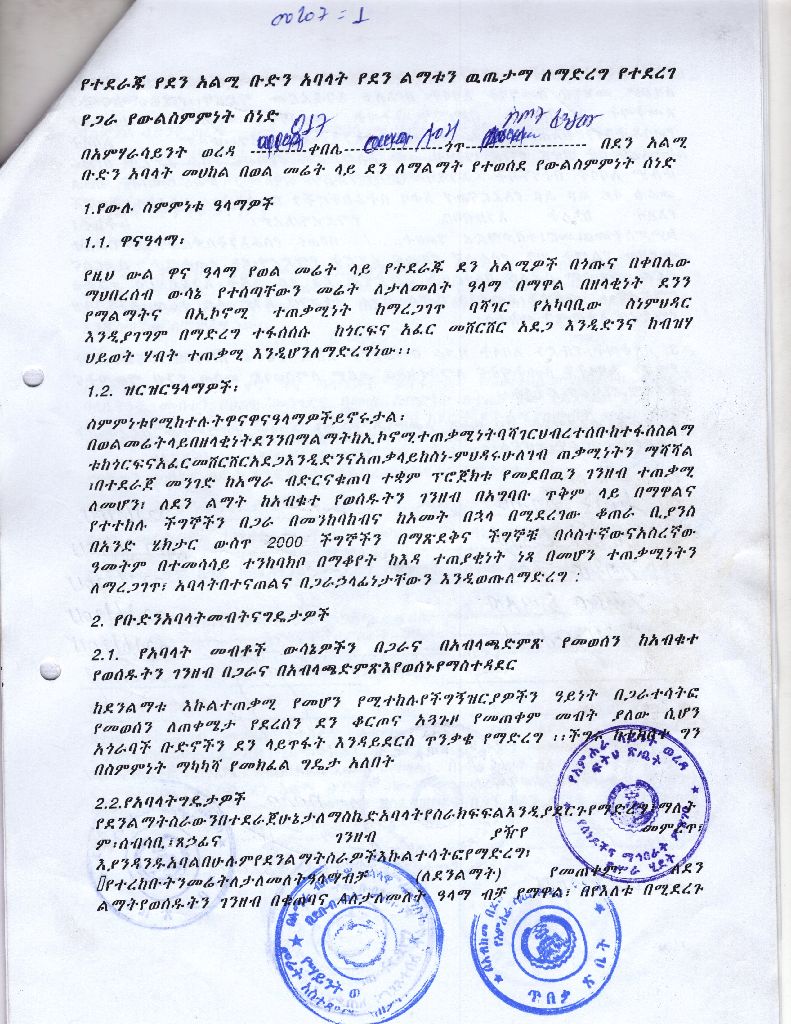 የተደራጁ የደን አልሚ ቡድን አባላት የደን ልማቱን ዉጤታማ ለማድረግ የተደረገ
የጋራ የውልስምምነት ሰነድ
በአምሃራሳይንት ወረዳ ------------ቀበሌ------------ጎጥ---------------- በደን አልሚ
ቡድን አባላት መሀከል በወል መሬት ላይ ደን ለማልማት የተወሰደ የውልስምምነት ሰነድ
1.የውሉ ስምምነቱ ዓላማዎች
1.1. ዋናዓላማ፡
የዚህ ውል ዋና ዓላማ የወል መሬት ላይ የተደራጁ ደን አልሚዎች በጎጡና በቀበሌው
ማህበረሰብ ውሳኔ የተሰጣቸውን መሬት ለታለመለት ዓላማ በማዋል በዘላቂነት ደንን
የማልማትና በኢኮኖሚ ተጠቃሚነት ከማረጋገጥ ባሻገር የአካባቢው ስነምህዳር
እንዲያገግም በማድረግ ተፋሰሱ ከጎርፍና አፈር መሸርሸር አደጋ እንዲድንና ከብዝሃ
ህይወት ሃብት ተጠቃሚ እንዲሆንለማድረግነው፡፡
1.2. ዝርዝርዓላማዎች፡
ስምምነቱየሚከተሉትዋናዋናዓላማዎችይኖሩታል፡
በወልመሬትላይበዘላቂነትደንንበማልማትከኢኮኖሚተጠቃሚነትባሻገርህብረተሰቡከተፋሰስልማ
ቱከጎርፍናአፈርመሸርሸርአደጋእንዲድንናአጠቃላይከስነ-ምህዳሩሁለገብ ጠቃሚነትን ማሻሻል
፣በተደራጀ መንገድ ከአማራ ብድርናቁጠባ ተቋም ፕሮጀክቱ የመደበዉን ገንዘብ ተጠቃሚ
ለመሆን፣ ለደን ልማት ከአብቁተ የወሰዱትን ገንዘብ በአግባቡ ጥቅም ላይ በማዋልና
የተተከሉ ችግኞችን በጋራ በመንከባከብና ከአመት በኋላ በሚደረገው ቆጠራ ቢያንስ
በአንድ ሄክታር ውስጥ 2000 ችግኞችን በማጽደቅና ችግኞቹ በሶስተኛውናአስረኛው
ዓመትም በተመሳሳይ ተንከባክቦ በማቆየት ከእዳ ተጠያቂነት ነጻ በመሆን ተጠቃሚነትን
ለማረጋገጥ፣ አባላትበተናጠልና በጋራኃላፊነታቸውን እንዲወጡለማድረግ ፡
2. የቡድንአባላትመብትናግዴታዎች
2.1. የአባላት መብቶች ውሳኔዎችን በጋራና በአብላጫድምጽ የመወሰን ከአብቁተ
የወሰዱትን ገንዘብ በጋራና በአብላጫድምጽእየወሰኑየማስተዳደር
ከደንልማቱ እኩልተጠቃሚ የመሆን የሚተከሉየችግኝዝርያዎችን ዓይነት በጋራተሳትፎ
የመወሰን ለጠቀሜታ የደረሰን ደን ቆርጦና አጓጉዞ የመጠቀም መብት ያለው ሲሆን
አጎራባች ቡድኖችን ደን ላይጥፋት እንዳይደርስ ጥንቃቄ የማድረግ ፡፡ችግሩ ከተከሰተ ግን
በስምምነት ማካካሻ የመክፈል ግዴታ አለበት
2.2.የአባላትግዴታዎች
የደንልማትስራውንበተደራጀሁኔታለማስኬድአባላትየስራክፍፍልእንዲያደርጉየማድረግ፣ማለት
ም፣ሰብሳቢ፣ጸኃፊና ገንዘብ ያዥየ መምረጥ፣
እያንዳንዱአባልበሁሉምየደንልማትስራዎችእኩልተሳትፎየማድረግ፣
የተረከቡትንመሬትለታለመለትዓላማብቻ (ለደንልማት) የመጠቀምም ለደን
ልማትየወሰዱትን ገንዘብ በቁጠባና ለታለመለት ዓላማ ብቻ የማዋል፣ በየእለቱ በሚደረጉ
ፍትህ ጽ/ቤት
ጥበቃ ጽ ቤት